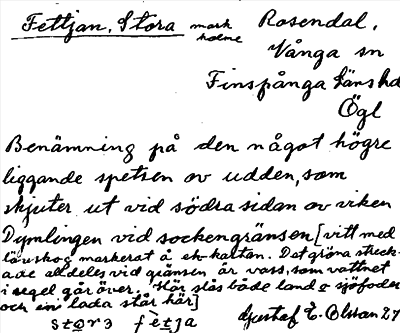 Fettjan, Stora mark Rosendal,
holme Vånga sn
Finspånga läns hd
Ögl
Benämning på den något högre
liggande spetsen av udden, som
skjuter ut vid södra sidan av viken
Dymlingen vid sockengränsen [vitt med
lövskog markerat å ek-kartan. Det gröna streck-
ade alldeles vid gränsen är vass, som vattnet
i regel går över. Här slås både land o sjöfoder
och en lada står här]
Gustaf E. Olsson 27